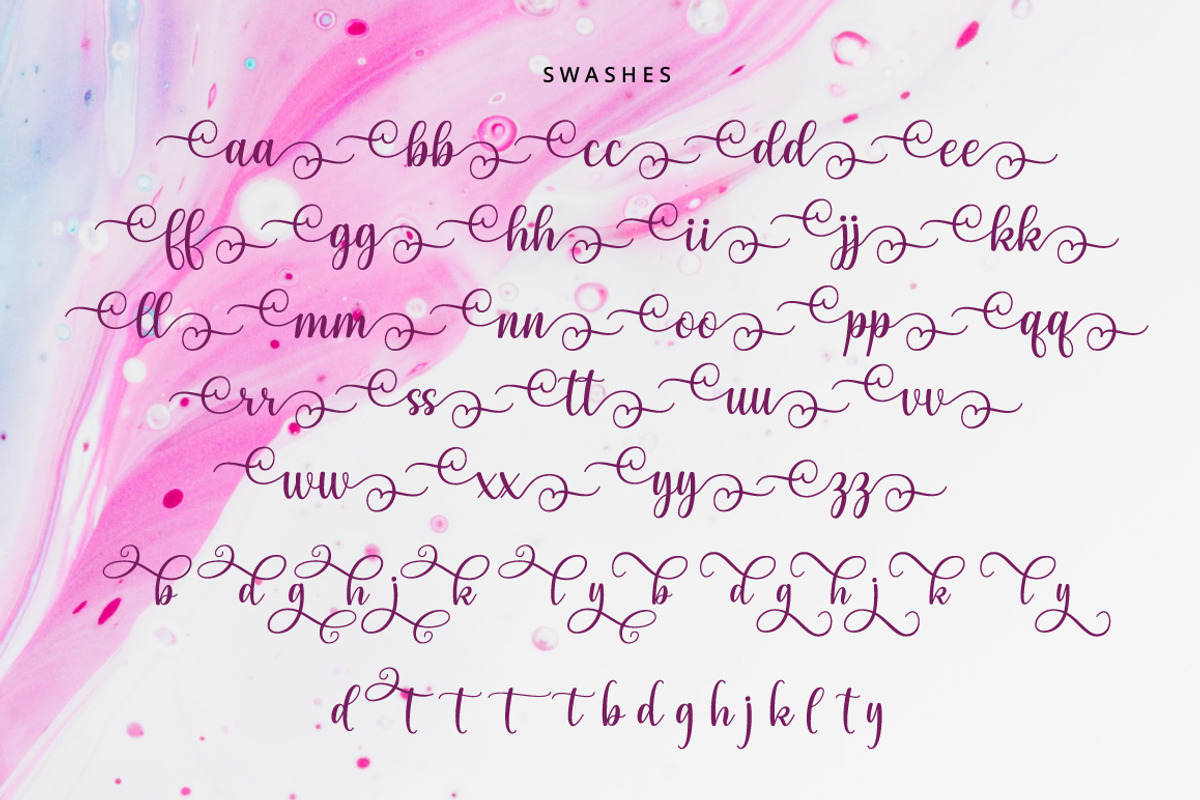 SWASHES
aa bb cc dd ee
ff gg hh ii jj kk
ll mm nn oo pp qq
rr ss tt uu vv
ww xx yy zz
b d g h j k l y b d g h j k l y
d t t t t b d g h j k l t y